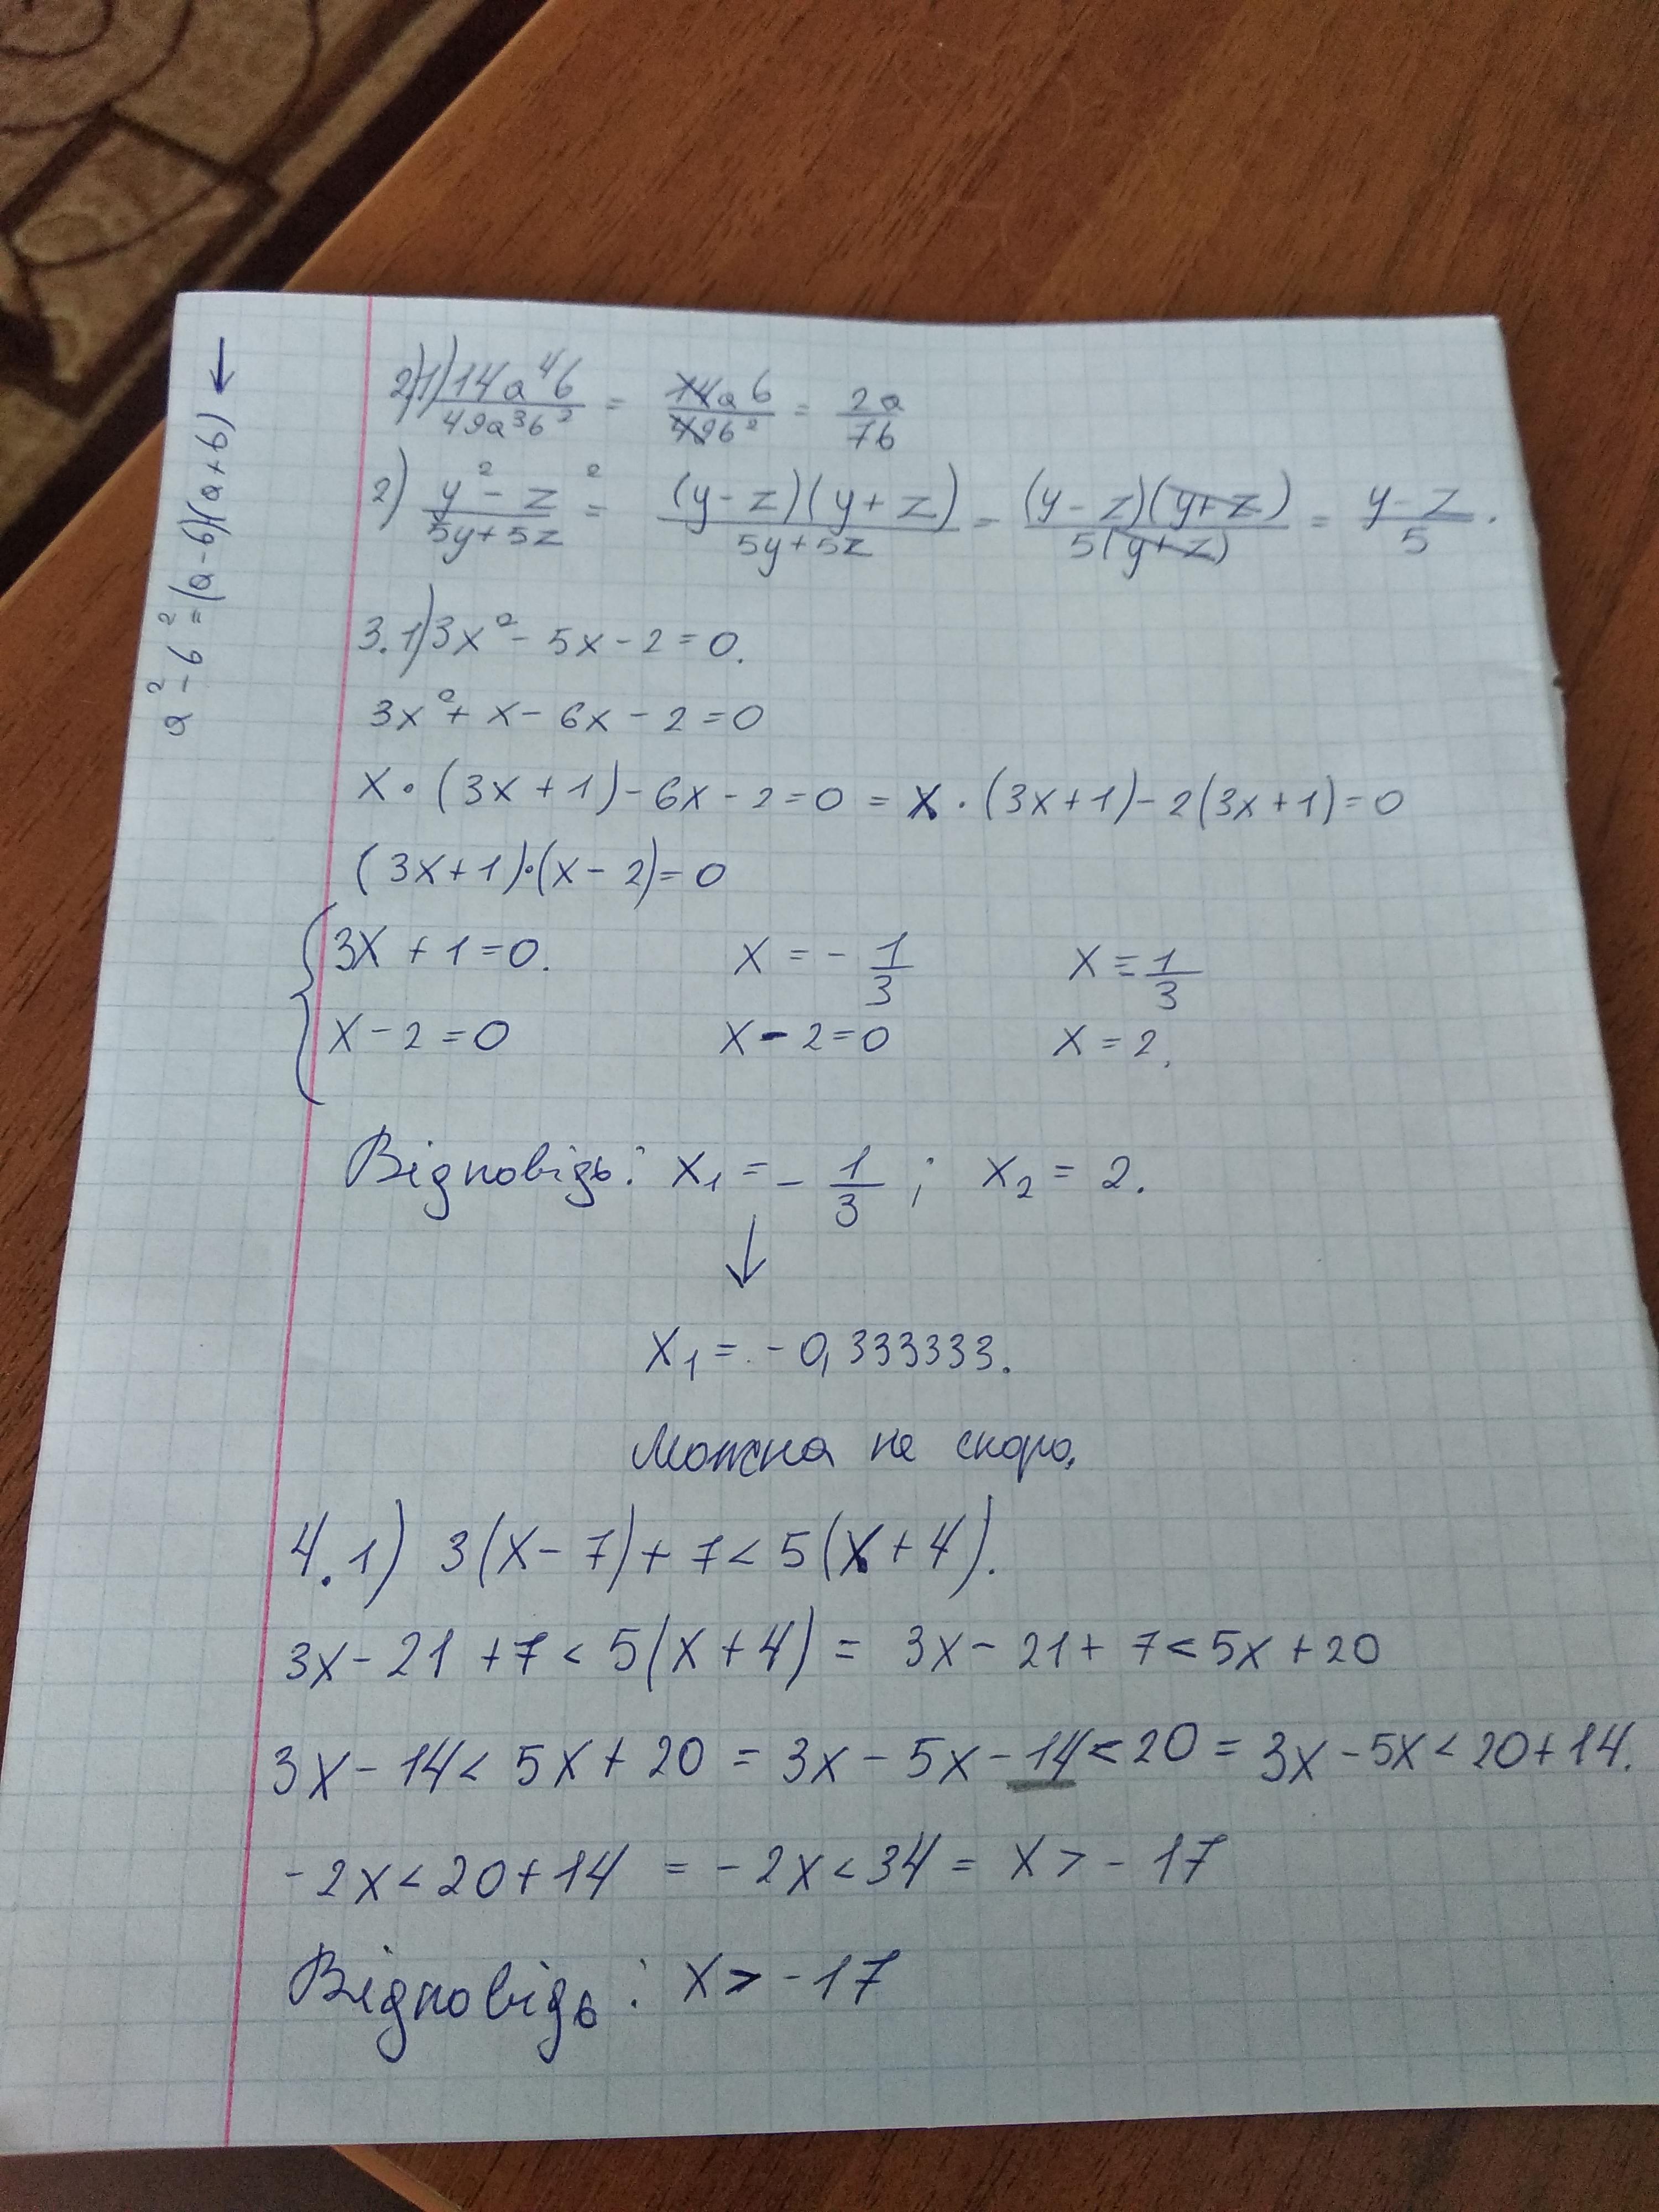 a² - b² = (a-b)(a+b) ←
2) 1) 14a⁴b / 49a³b² = 14ab / 49b² = 2a / 7b
2) y² - z² / 5y+5z = (y-z)(y+z) / 5y+5z = (y-z)(y+z) / 5(y+z) = y-z / 5.
3. 1) 3x² - 5x - 2 = 0.
3x² + x - 6x - 2 = 0
x · (3x + 1) - 6x - 2 = 0 = x · (3x+1) - 2(3x+1) = 0
(3x+1)·(x-2) = 0
{ 3x + 1 = 0. x = - 1/3 x = 1/3
x - 2 = 0 x - 2 = 0 x = 2.
Відповідь: x₁ = - 1/3 ; x₂ = 2.
↓
x₁ = - 0,333333.
Можна не скоро.
4. 1) 3(x-7) + 7 < 5(x+4).
3x - 21 + 7 < 5(x+4) = 3x - 21 + 7 < 5x + 20
3x - 14 < 5x + 20 = 3x - 5x - 14 < 20 = 3x - 5x < 20 + 14.
- 2x < 20 + 14 = - 2x < 34 = x > - 17
Відповідь: x > - 17